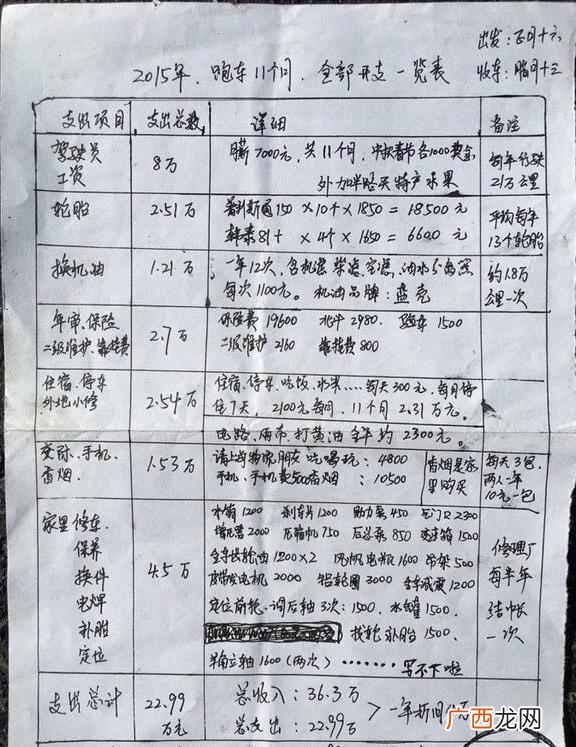 出发：正月十六
2015年、跑车11个月、全部开支一览表
收车：腊月十三
支出项目 支出总数 详细 备注
驾驶员
工资
8万
薪7000元，共11个月，中秋春节各1000奖金
外加
特产水果
每年行驶
21万公里
轮胎
2.51万
普利斯通150 × 10个 × 1850 = 18500元
韩泰81个 × 4个 × 1650 = 6600元
平均每年
13个轮胎
换机油
1.21万
一年12次，含机滤 柴滤 空滤，油水分离器
每次1100元。 机油品牌：蓝壳
约1.8万
公里一次
年审、保险
二级维护、靠挂费
2.7万
保险费 19600 北斗 2980. 验车 1500
二级维护 2160 靠挂费 800
住宿、停车
外地小修
2.54万
住宿、停车、吃饭、水果……每天300元、每月停
住7天，2100元每月，11个月 2.31万元。
电路、雨布、打黄油 全年约2300元。
交际、手机、
香烟
1.53万
请上海物流朋友 吃喝玩：4800
手机、手机费500 香烟：10500
香烟是家
里购买
每天3包
两人一年
10元一包
家里修车
保养
换件
电焊
补胎
定位
4.5万
水箱1200 刹车片1200 助力泵450 龙门只2300
增压器2000 压缩机750 后总泵850 变速箱1500
1200×2 风扇电机1600 吊架500
发电机2000 铝轮圈3000 全车减震1200
定位前轮、调后轴3次：1500、水罐1500.
找轮补胎1500.
半角立轴1600（两次）……写不下啦
修理厂
每半年
结帐
一次
支出总计
22.99
万元
总收入：36.3万
总支出：22.99万
> 一年折旧
广西龙网